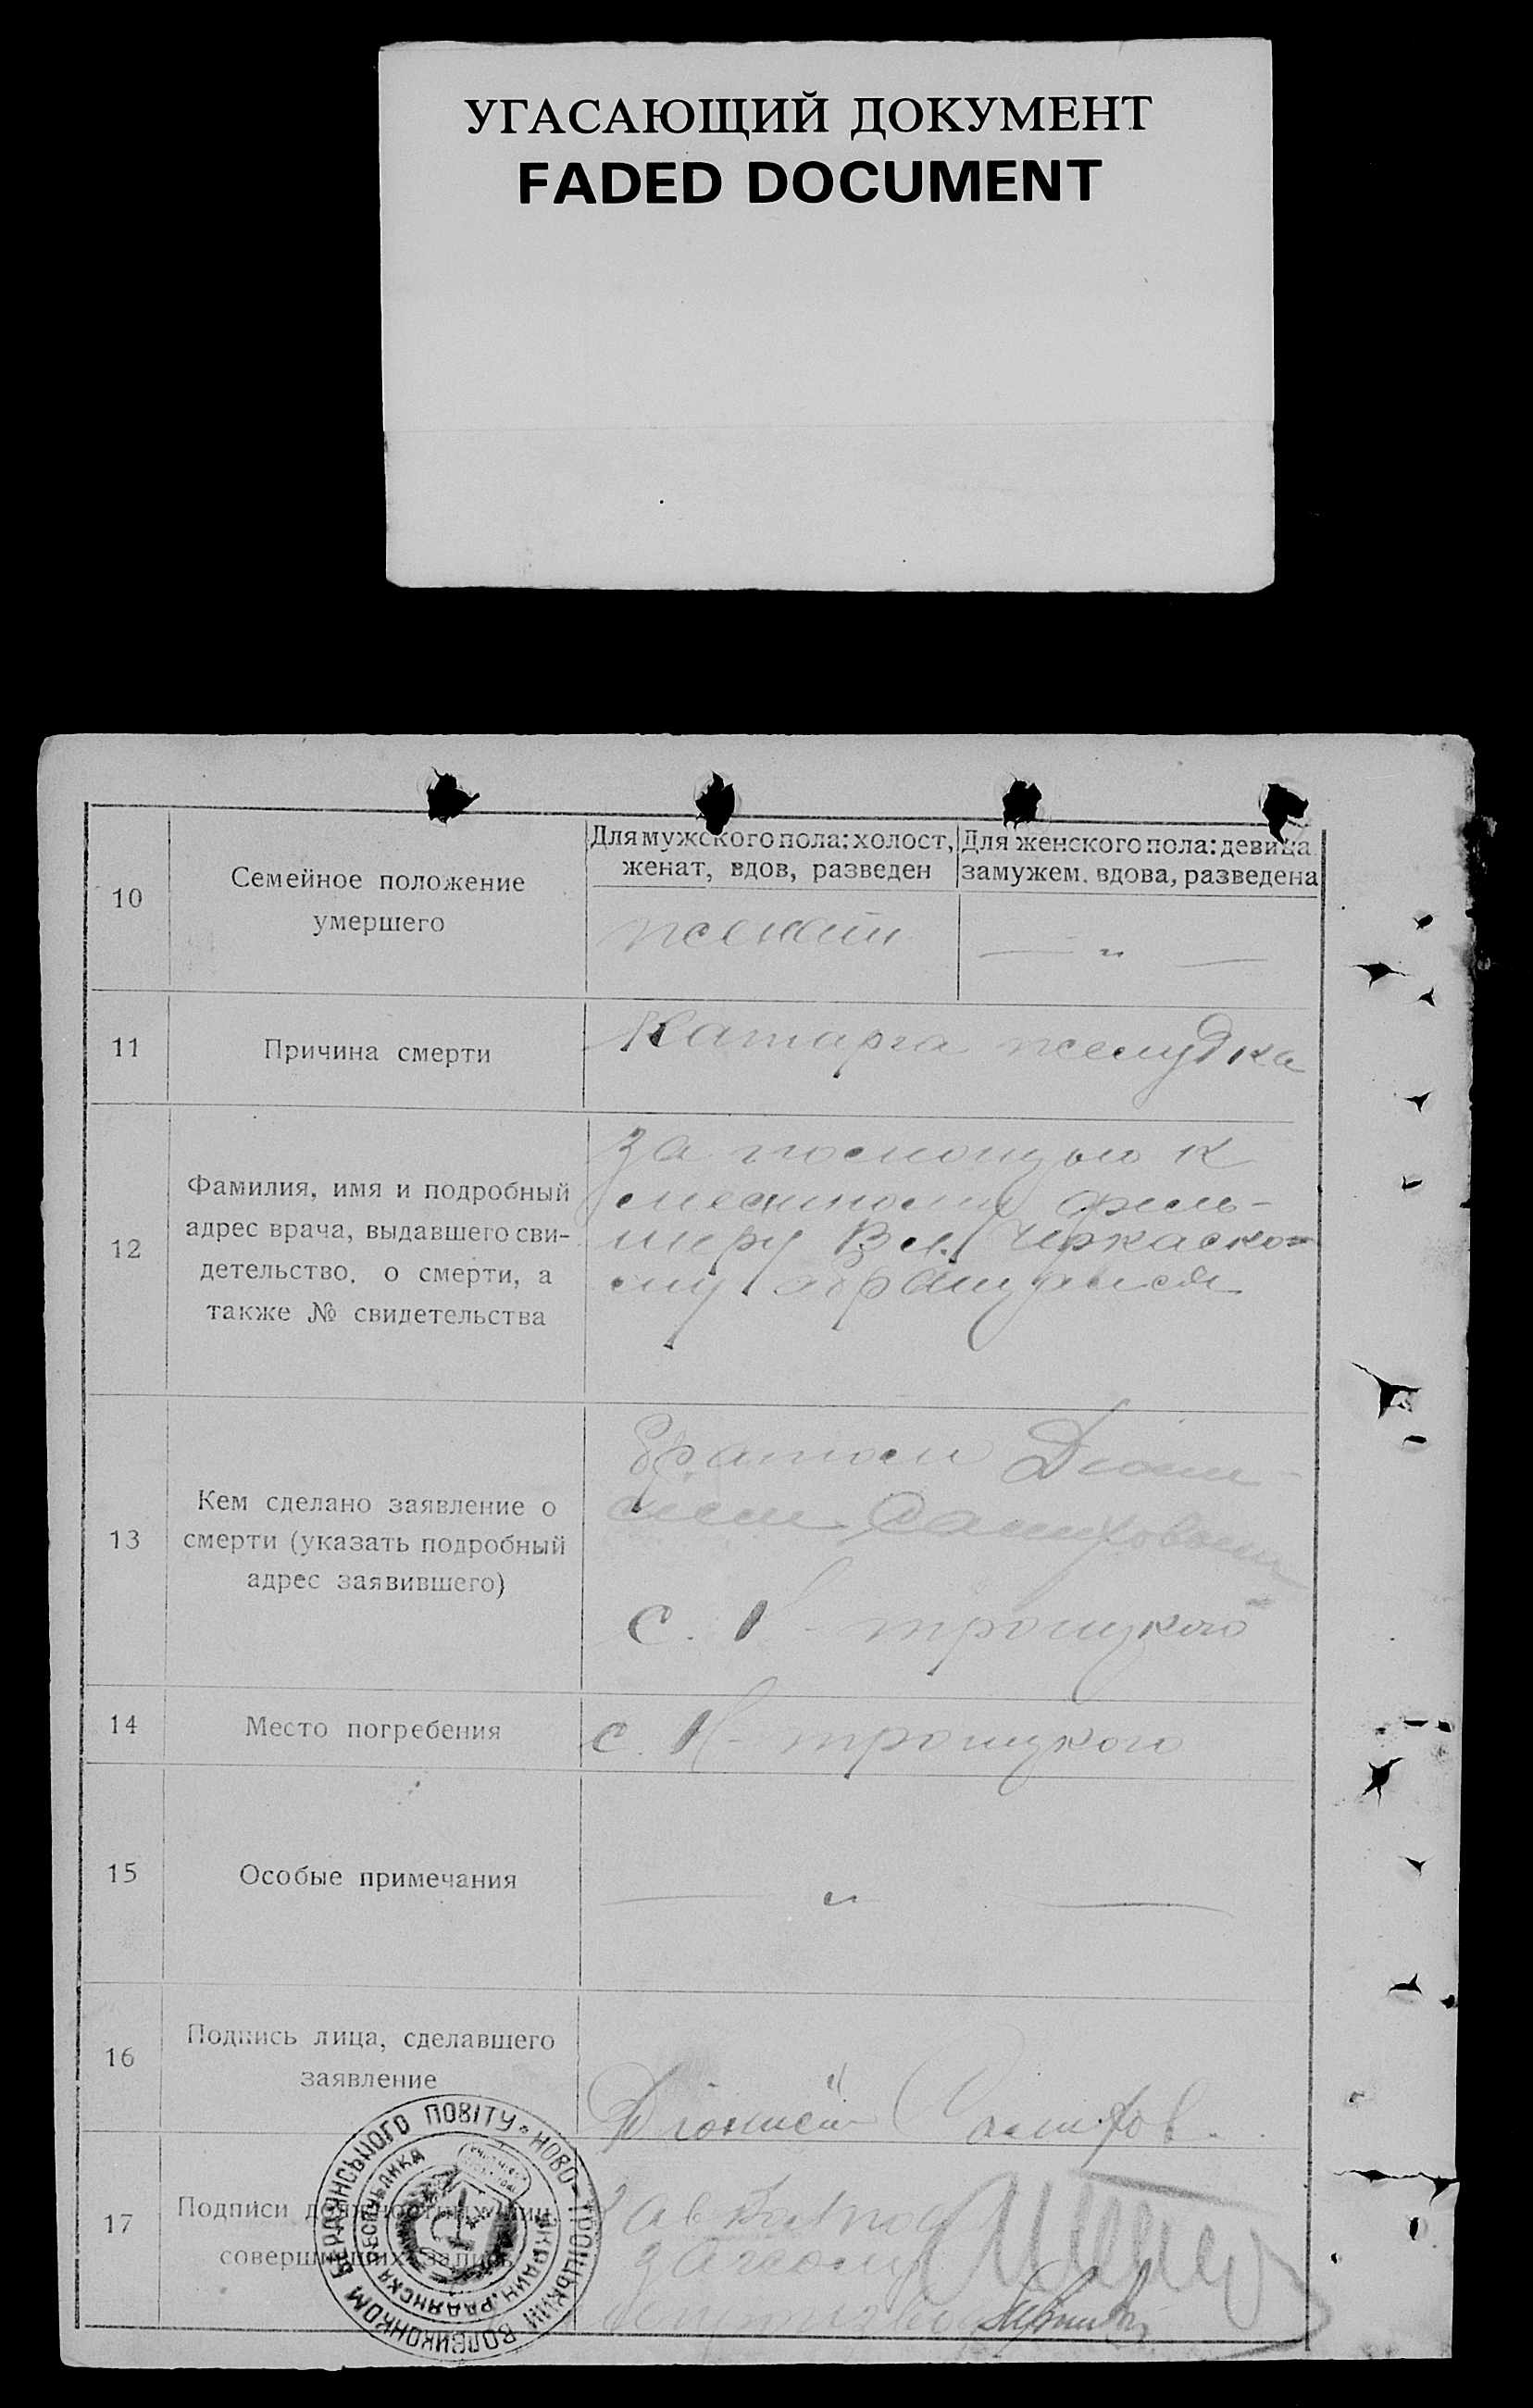 УГАСАЮЩИЙ ДОКУМЕНТ
FADED DOCUMENT
10
Семейное положение
умершего
Для мужского пола: холост,
женат, вдов, разведен
Для женского пола: девица
замужем. вдова, разведена
женат
— „ —
11
Причина смерти
Катарга желудка
12
Фамилия, имя и подробный
адрес врача, выдавшего сви-
детельство, о смерти, а
также № свидетельства
За помощью к
местному фель-
шеру Вл. Черкаско-
му обращался
13
Кем сделано заявление о
смерти (указать подробный
адрес заявившего)
Братом Диони-
сием
с. Н- троицкого
14
Место погребения
с. Н- троицкого
15
Особые примечания
— „ —
16
Подпись лица, сделавшего
заявление
Діонисій
17
Подписи должностных лиц
совершивших запись
НОВО-ТРОЦЬКИЙ ВОЛВИКОНКОМ БЕРДЯНСЬКОГО ПОВІТУ
УКРАИН. РАДЯНСКА РЕСПУБЛИКА